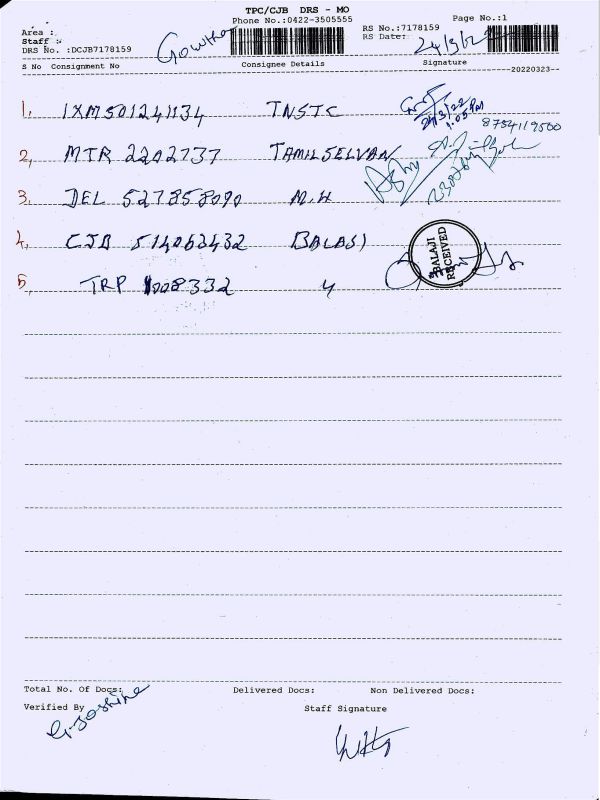 TPC/CJB DRS - MO
Phone No.:0422-3505555
Page No.:1
Area :
Staff :
DRS No. :DCJB7178159
RS No.:7178159
RS Date:
24/3/22
S No Consignment No Consignee Details Signature
20220323--
1, IXM501241134 TNSTC 24/3/22 1:05 PM
8754119500
2, MTR 2202737 TAMILSELVAN
3, DEL 527858090 M.H
4, CJB 514063432 BALAJI
BALAJI
RECEIVED
5, TRP 1008332 4
Total No. Of Docs: Delivered Docs: Non Delivered Docs:
Verified By Staff Signature